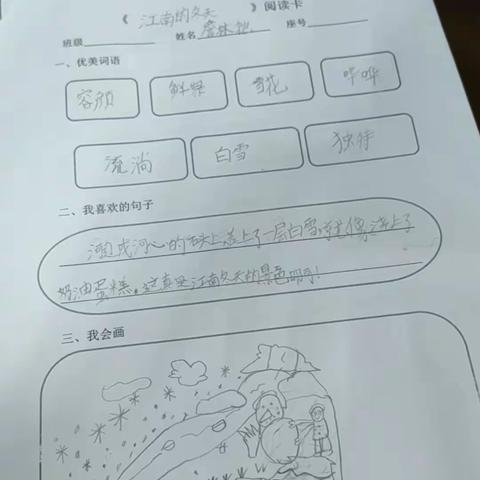 《江南的冬天》阅读卡
班级 姓名 座号
一、优美词语
容颜 鲜果 雪花 哗哗
流淌 白雪 独特
二、我喜欢的句子
河心的石头上盖上了一层白雪,就像浇上了
奶油蛋糕。这真是江南冬天的景色啊!
三、我会画